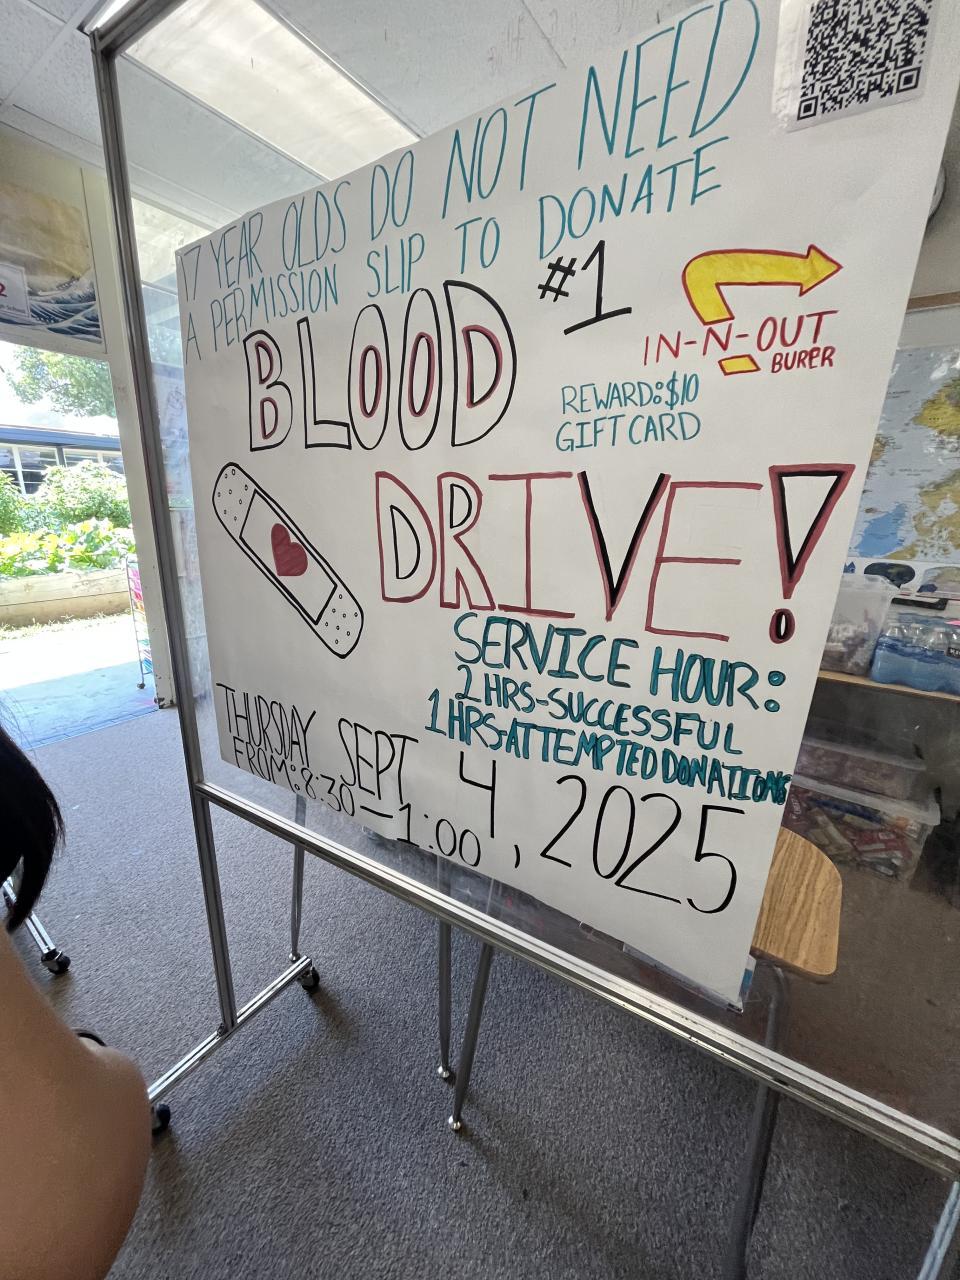 17 YEAR OLDS DO NOT NEED
A PERMISSION SLIP TO DONATE
BLOOD #1
IN-N-OUT
BURER
REWARD:$10
GIFT CARD
DRIVE!
SERVICE HOUR:
2 HRS-SUCCESSFUL
1 HRS-ATTEMPTED DONATIONS
THURSDAY SEPT 4, 2025
FROM:8:30-1:00